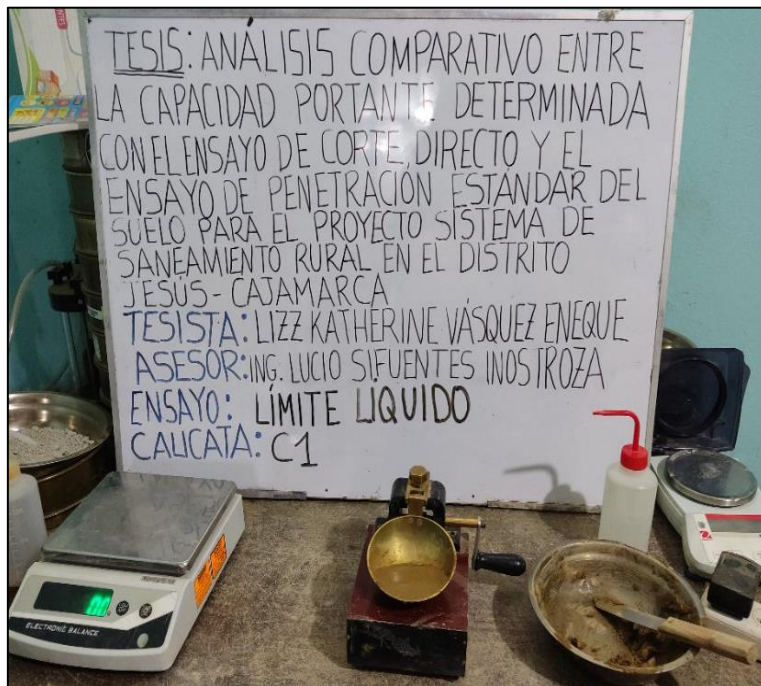 TESIS: ANÁLISIS COMPARATIVO ENTRE
LA CAPACIDAD PORTANTE DETERMINADA
CON EL ENSAYO DE CORTE DIRECTO Y EL
ENSAYO DE PENETRACIÓN ESTÁNDAR DEL
SUELO PARA EL PROYECTO SISTEMA DE
SANEAMIENTO RURAL EN EL DISTRITO
JESÚS - CAJAMARCA
TESISTA: LIZZ KATHERINE VÁSQUEZ ENEQUE
ASESOR: ING. LUCIO SIFUENTES INOSTROZA
ENSAYO: LÍMITE LÍQUIDO
CALICATA: C1
ELECTRONIC BALANCE